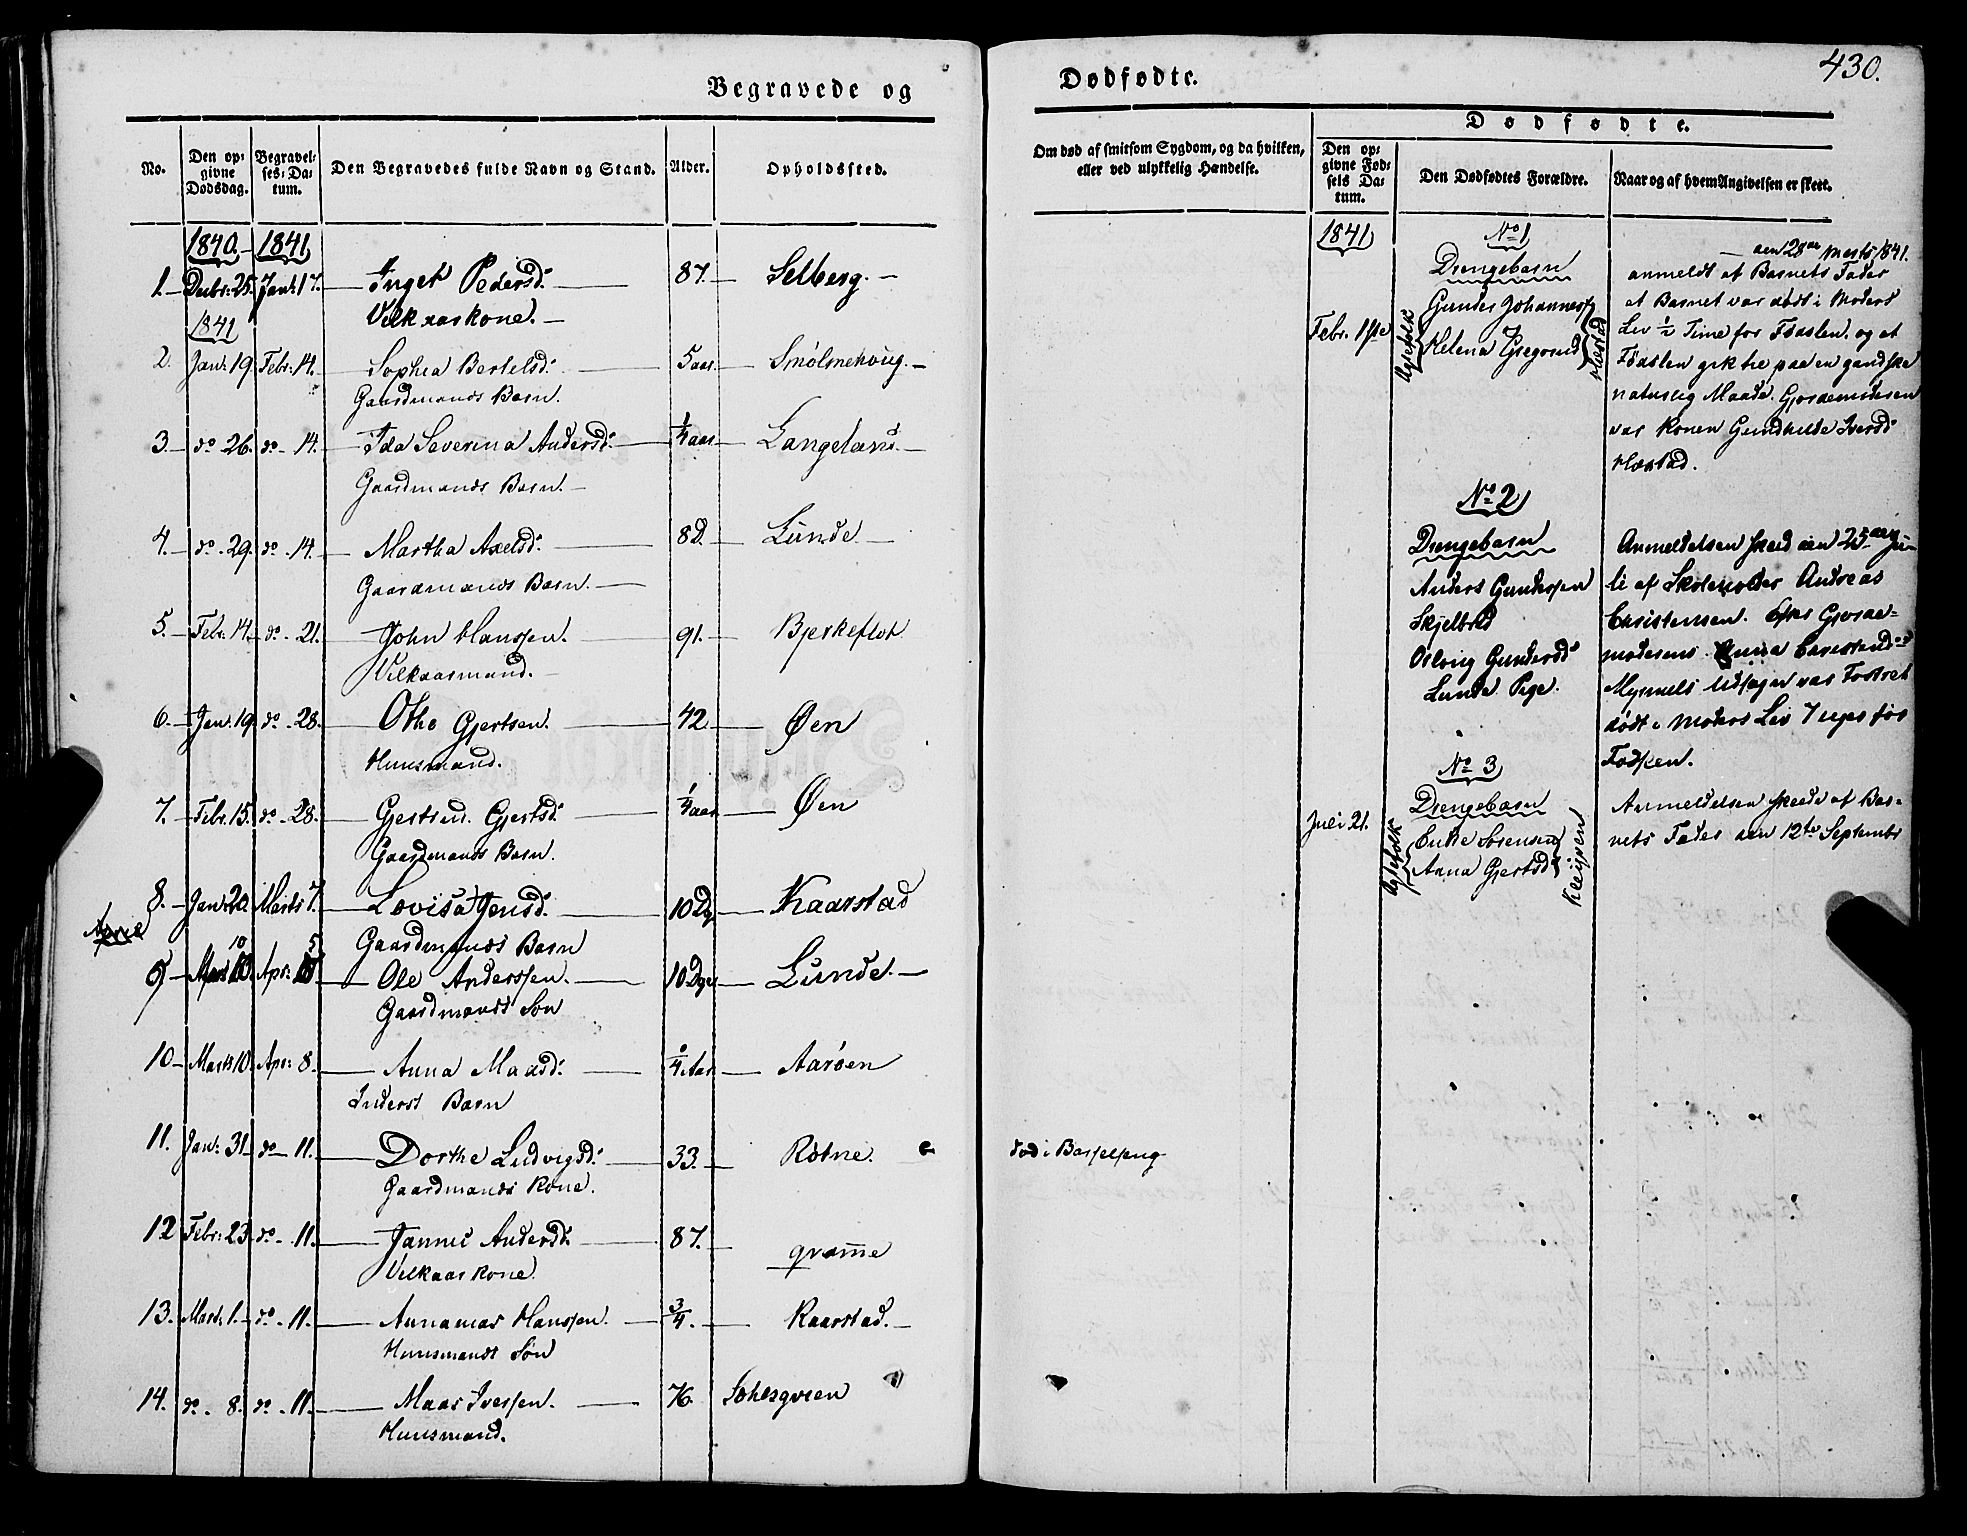 Begravede og
No.
Den op-
givne
Dødsdag.
Begravel-
ses-Da-
tum.
Den Begravedes fulde Navn og Stand.
Alder.
Opholdssted.
1840.- 1841
1.- Decbr: 25. Jan: 17. Inget Pedersd: 87. Selberg.
Vilkaarskone.
1841
2. Jan: 19 Febr: 14. Sophia Bertelsd: 5 aar. Smølmehoug.
Gaardmands Barn.
3.- do 26. do- 14. Ida Severina Andersd: 1/4 aar Langeland.
Gaardmands Barn.
4.- do - 29. do - 14. Martha Axelsd: 8 D. Lunde
Gaardmands Barn.
5.- Febr. 14. do - 21. John Hanssen. 91. Bjerkeflot
Vilkaarsmand.
6.- Jan: 19 do - 28. Otho Gjertsen. 42 Øen
Huusmand.
7.- Febr. 15. do - 28. Gjertrud Gjertsd: 1/4 aar Øen
Gaardmands Barn.
8.- Jan: 20. Marts 7. Lovisa Jensd: 10 Dg Kaarstad
Gaardmands Barn
10 5
9 Apr: Ole Anderssen. 10 Dge Lunde.
Gaardmands Søn
10- Marts 10. Apr: 8. Anna Maasd: Aarøen
Inderst Barn
11. Jan: 31 do- 11. Dorthe Ludvigsd: 33. Rødne.
Gaardmands Kone.
12 Febr: 23. do - 11. Jannis Andersd: 87. gramme
Vilkaarskone.
13. Mart: 1. do - 11. Annanias Hanssen. 3/4. Kaarstad.
Huusmands Søn
14. do - 8. do - 11. Maas Iverssen. 76.
Huusmand.
Dødfødte.
430.
Om død af smitsom Sygdom, og da hvilken,
eller ved ulykkelig Hændelse.
Dødfødte.
Den op-
givne Fød-
sels Da-
tum.
Den Dødfødtes Forældre.
Naar og af hvem Angivelsen er skeet.
død i Barselseng
1841
No 1
Drengebarn
Febr. 1ste
Gunder Johannes
Helena Gregersd
Hæstad
den 28de Marts 1841.
anmeldt af Barnets Fader
at Barnet var dødt i Moders
Liv 1/2 Time før Fødslen. og at
Fødslen gik til paa en gandske
naturlig Maade. Gjordemoderen
var Konen Gundhilde Iversd:
Hæstad.
No 2
Drengebarn
Anders Gundersen
Skjelbred
Oslvig Gundersd:
Lunde Pige.
Anmeldelsen skeed den 25de Ju-
li af Skoleholder Andreas
Christensen. Efter Gjorde-
moderens Anna
Myrmels Udsagn var Fostret
dødt i Moders Liv 7 Uger før
Fødslen.
No 3
Juli 21.
Drengebarn
Enke Sørensen
Anna Gjertsd:
Anmeldelsen skeede af Bar-
nets Fader den 12te Septembr